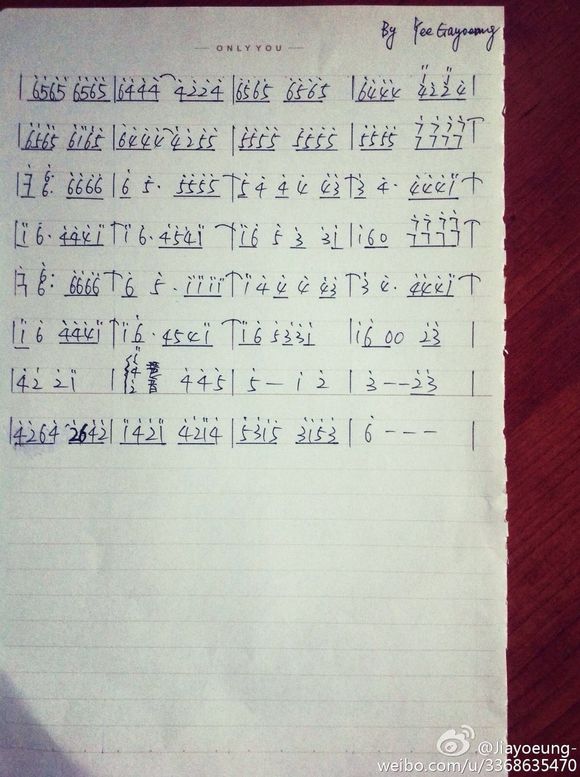 By Yee Gayoeung
— ONLY YOU —
| 6565 6565 | 6444 4224 | 6565 6565 | 6444 4224 |
| 6565 6165 | 6444 4255 | 5555 5555 | 5555 7777 7777
6666 | 6 5 · 5555 | 5 4 4 4 43 | 3 4 · 4441
| 1 6 · 4441 | 1 6 · 4541 | 1 6 5 3 31 | 1 6 0 7777 7777
6666 | 6 5 · 1111 | 1 4 4 4 43 | 3 4 · 4441
| 1 6 4441 | 1 6 · 4541 | 1 6 5331 | 1 6 00 23 |
| 42 21 | 1 4 2 445 | 5 — 1 2 | 3 — — 23 |
| 4264 2642 | 1421 4214 | 5315 3153 | 6 — — — |
@Jiayoeung-
weibo.com/u/3368635470